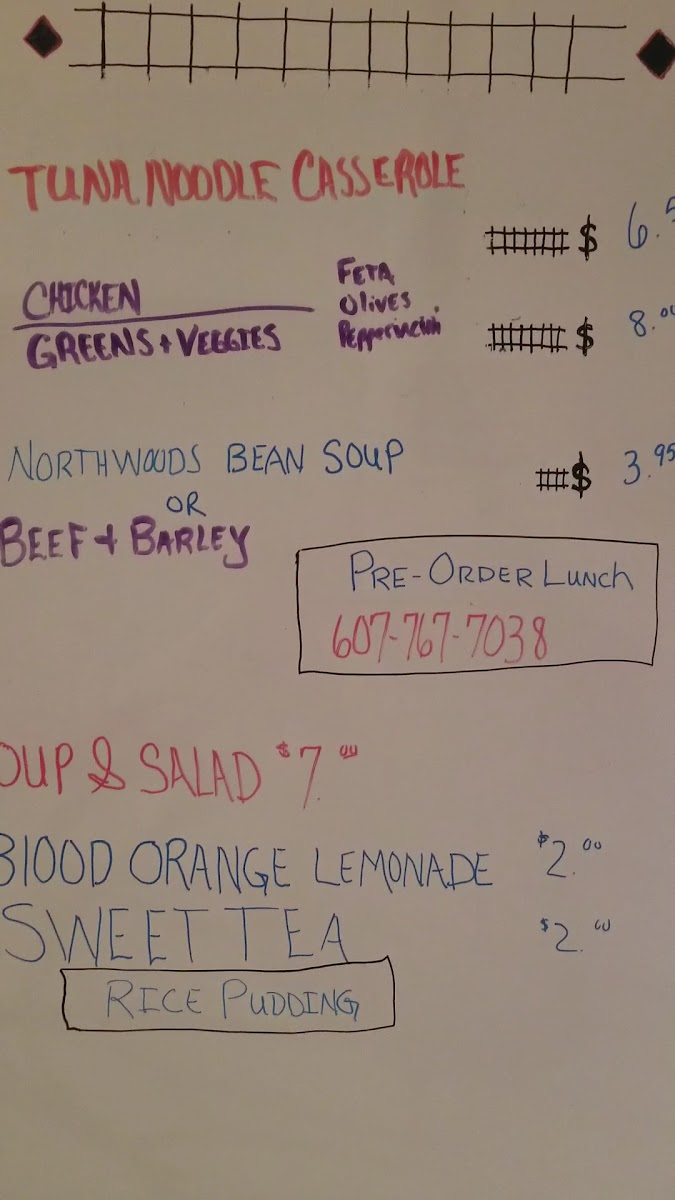 TUNA NOODLE CASSEROLE
$ 6.5
CHICKEN
GREENS + VEGGIES
FETA
Olives
$ 8.00
NORTHWOODS BEAN SOUP
$ 3.95
OR
BEEF + BARLEY
PRE-ORDER LUNCH
607-767-7038
OUP & SALAD $7.00
BlOOD ORANGE LEMONADE $2.00
SWEET TEA $2.00
RICE PUDDING